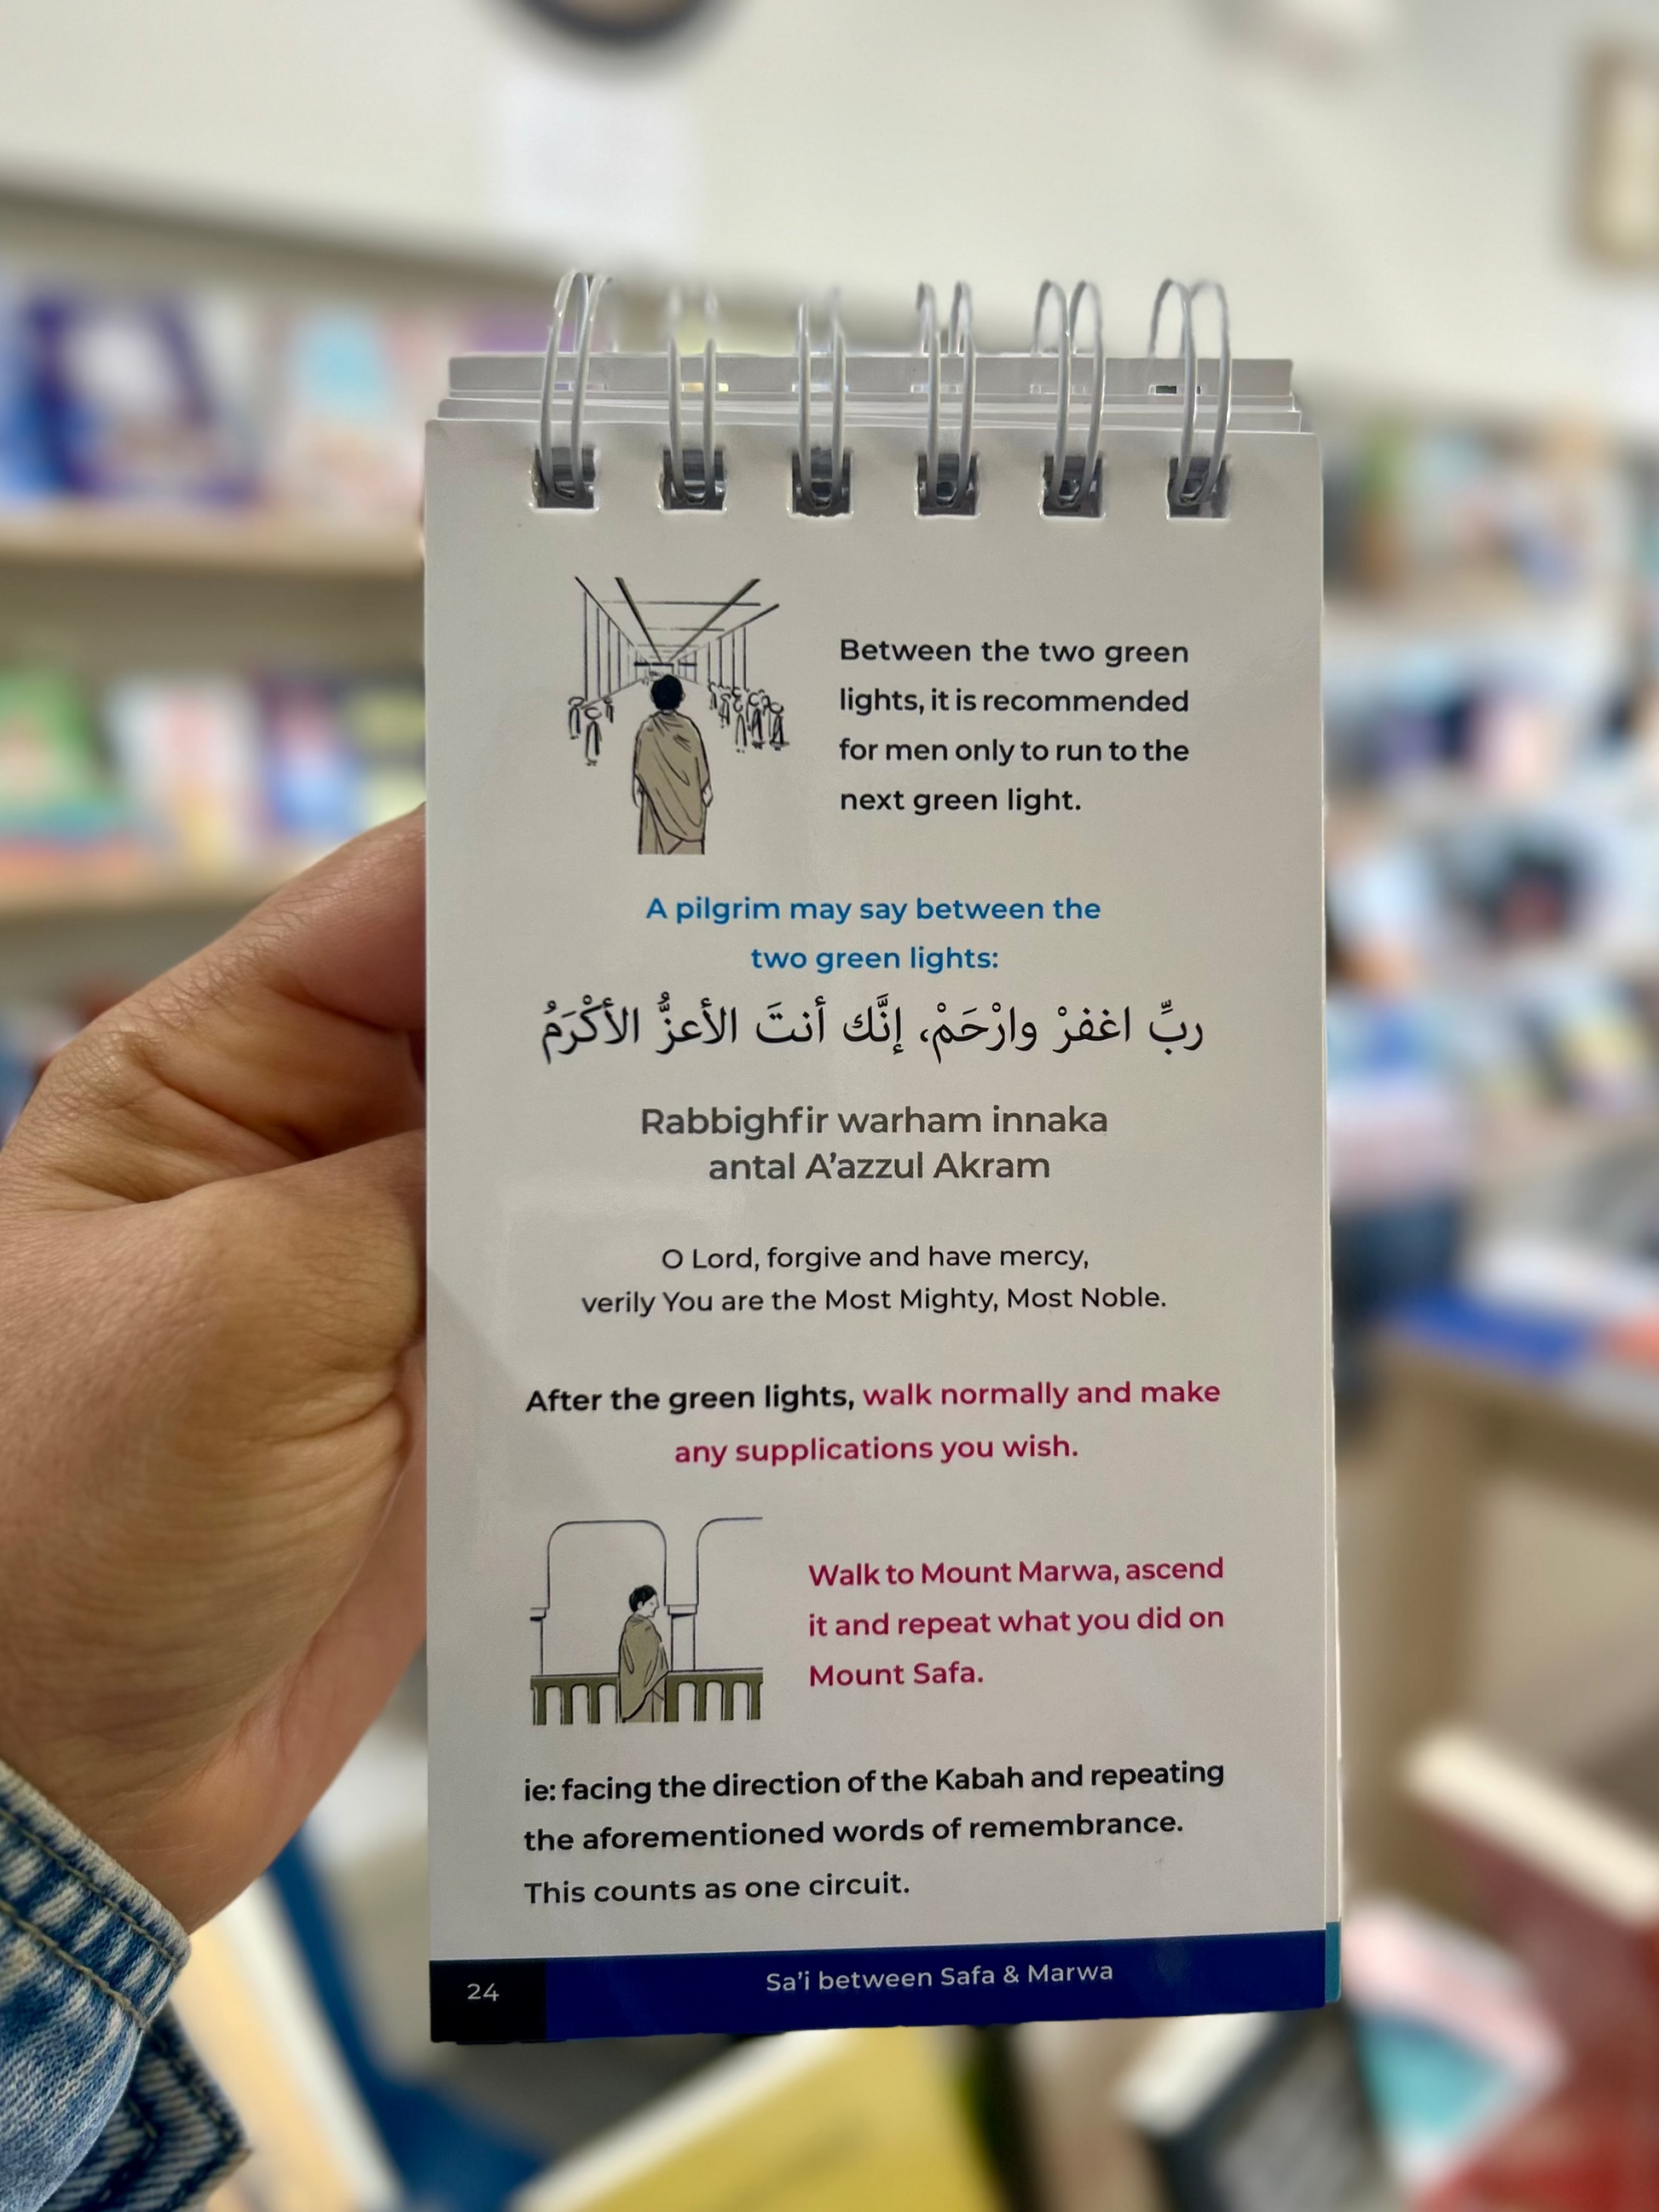 Between the two green
lights, it is recommended
for men only to run to the
next green light.
A pilgrim may say between the
two green lights:
ربِّ اغفرْ وارْحَمْ، إنَّك أنتَ الأعزُّ الأكْرَمُ
Rabbighfir warham innaka
antal A'azzul Akram
O Lord, forgive and have mercy,
verily You are the Most Mighty, Most Noble.
After the green lights, walk normally and make
any supplications you wish.
Walk to Mount Marwa, ascend
it and repeat what you did on
Mount Safa.
ie: facing the direction of the Kabah and repeating
the aforementioned words of remembrance.
This counts as one circuit.
24 Sa'i between Safa & Marwa